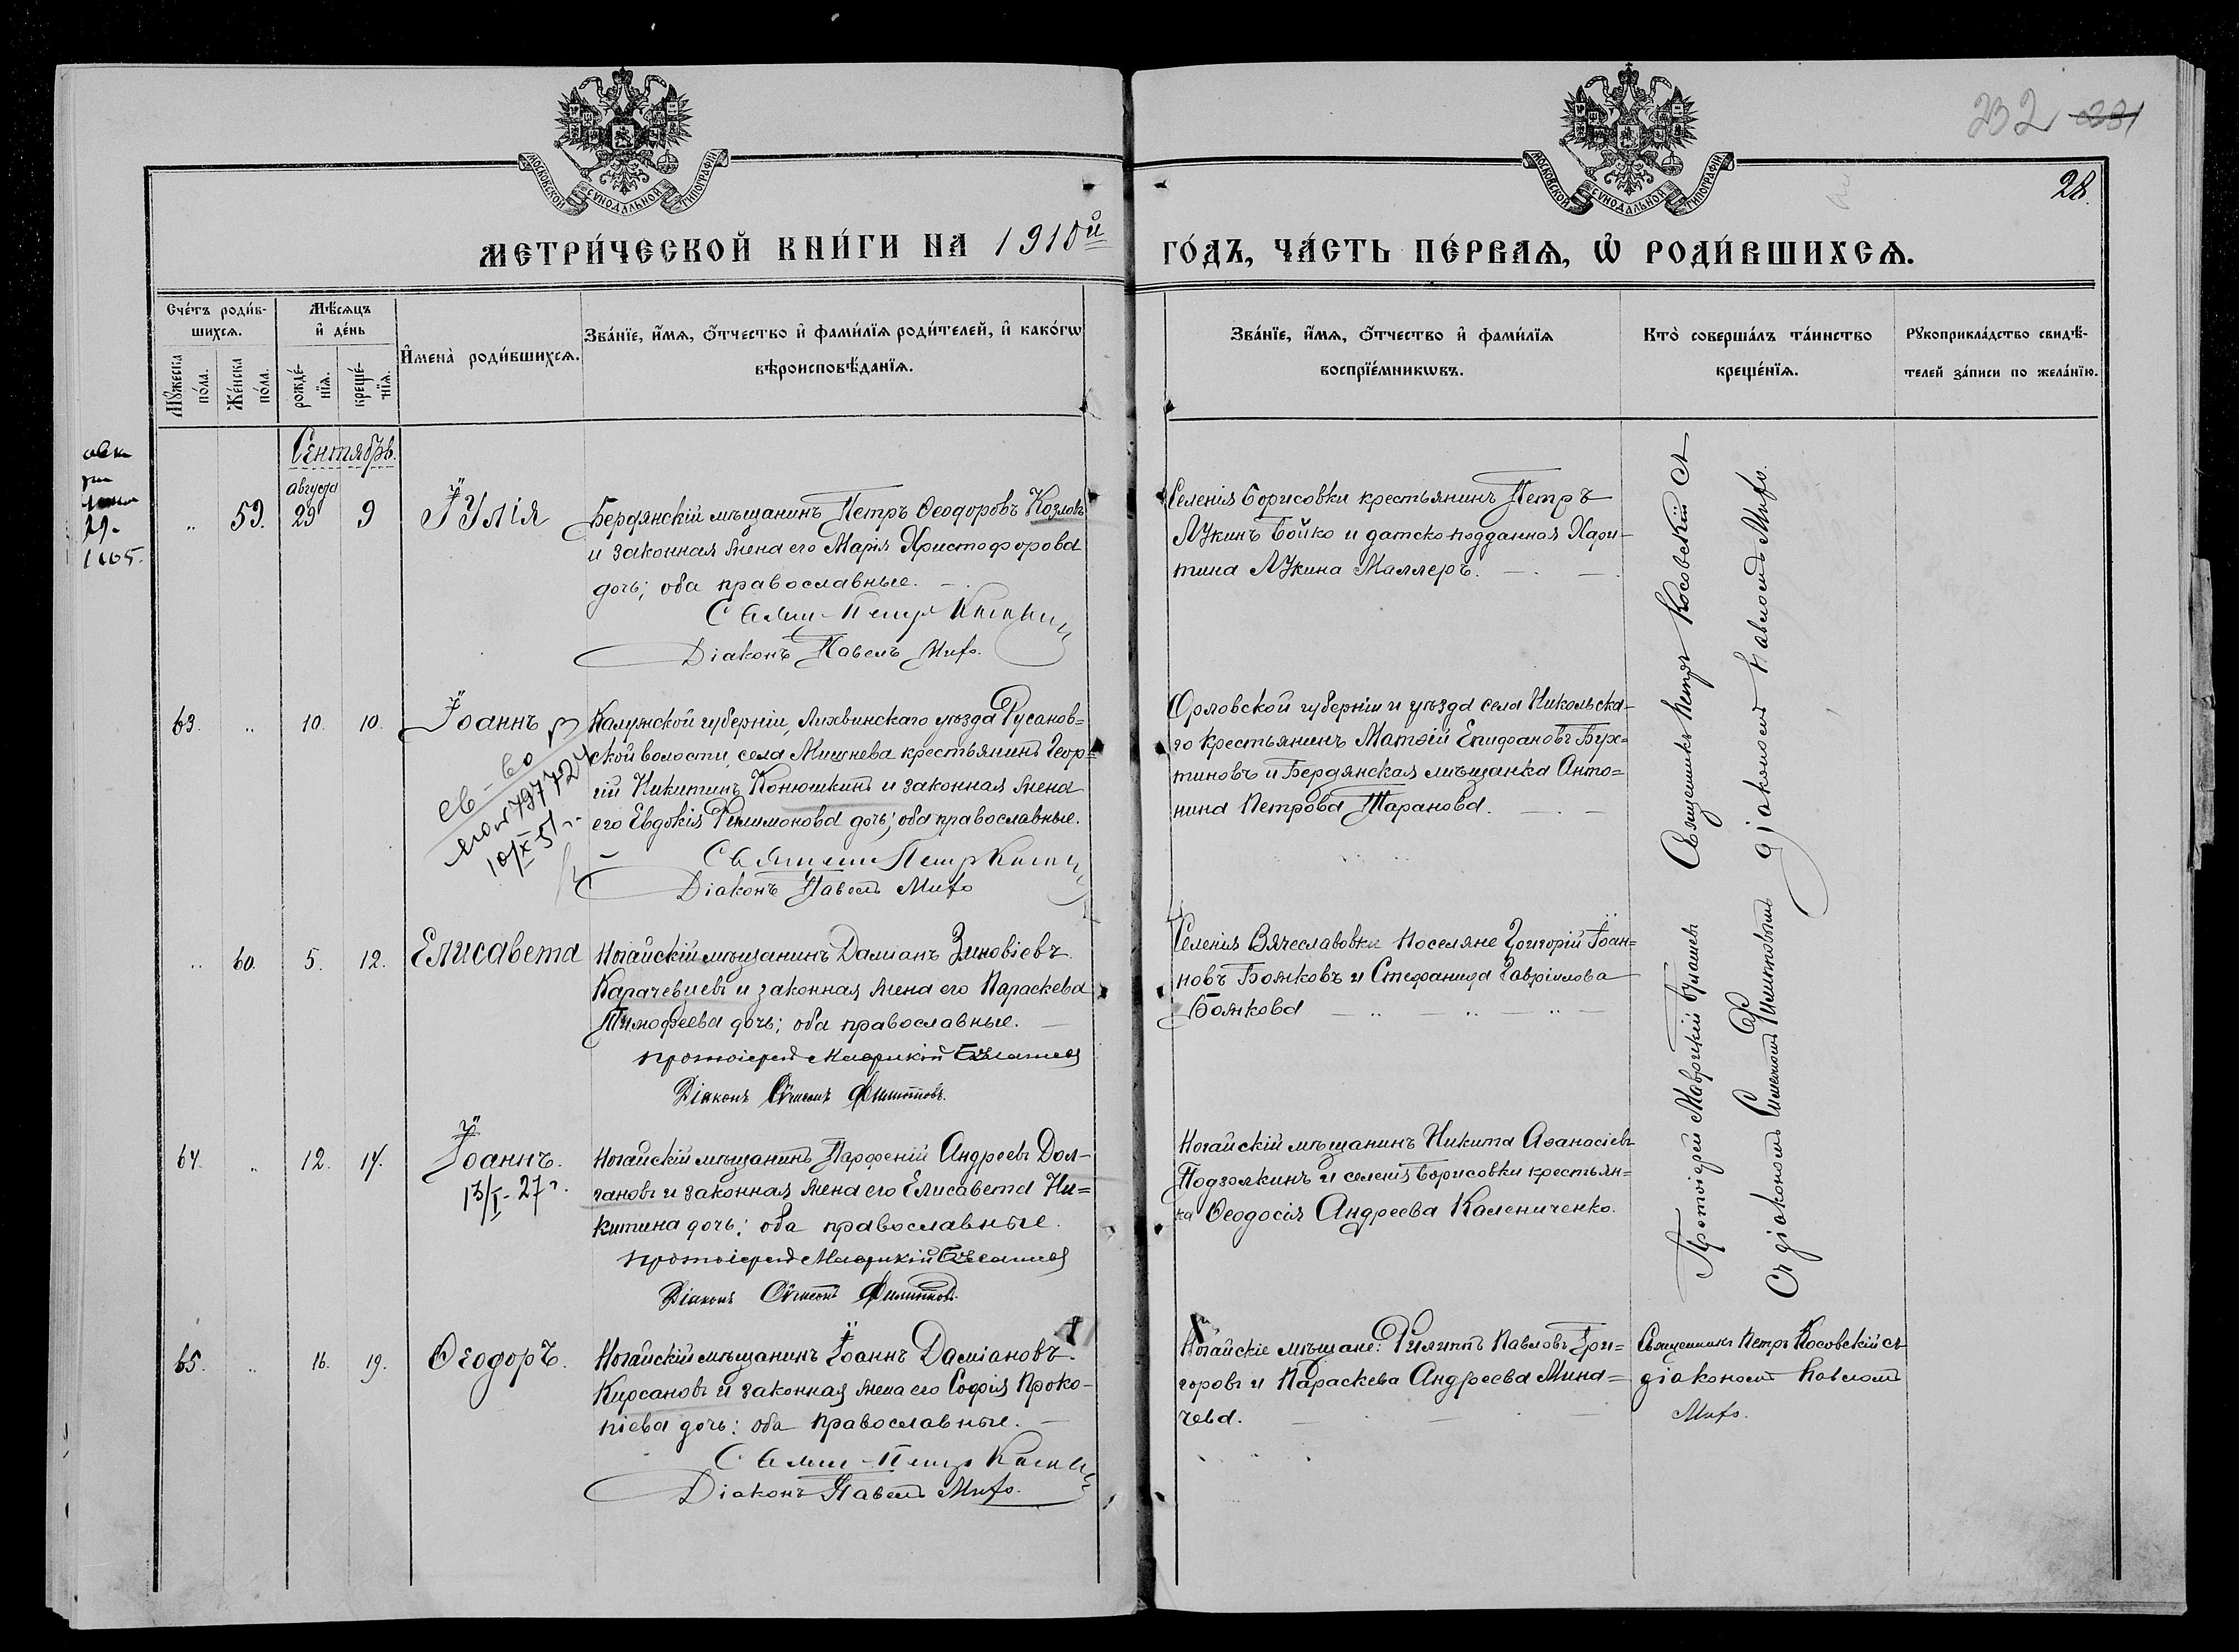 МОСКОВСКОЙ СѴНОДАЛЬНОЙ ТИПОГРАФІИ
МОСКОВСКОЙ СѴНОДАЛЬНОЙ ТИПОГРАФІИ
232 231
28.
МЕТРИ́ЧЕСКОЙ КНИ́ГИ НА 1910й
ГО́ДЪ, ЧА́СТЬ ПЕ́РВАѦ, Ѡ҆ РОДИ́ВШИХСѦ.
Сче́тъ роди́в-
шихсѧ.
Мꙋ́жеска
по́ла.
Же́нска
по́ла.
Мѣ́сѧцъ
и҆ де́нь
рожде́-
нїѧ.
креще́-
нїѧ.
И҆мена̀ роди́вшихсѧ.
Зва́нїе, и҆́мѧ, ѻ҆́тчество и҆ фами́лїѧ роди́телей, и҆ како́гѡ
вѣроисповѣ́данїѧ.
Зва́нїе, и҆́мѧ, ѻ҆́тчество и҆ фами́лїѧ
воспрїе́мникѡвъ.
Кто̀ соверша́лъ та́инство
креще́нїѧ.
Рꙋкоприкла́дство свидѣ́-
телей за́писи по жела́нїю.
Сентябрь.
августа
„ 59. 29 9 Іулія
Бердянскій мѣщанинъ Петръ Ѳеодоровъ Козловъ
и законная жена его Марія Христофорова
дочь; оба православные.
Діаконъ Павелъ Миѳо.
Селенія Борисовки крестьянинъ Петръ
Лукинъ Бойко и датско-подданная Хари-
тина Лукина Маллеръ.
Священникъ Петръ Косовскій съ
діакономъ Павломъ Миѳо.
63. „ 10. 10. Іоаннъ
10/X-51 г.
Калужской губерніи, Лихвинскаго уѣзда Русанов-
ской волости, села Мишнева крестьянинъ Геор-
гій Никитинъ Конюшкинъ и законная жена
его Евдокія Филимонова дочь; оба православные.
Діаконъ Павелъ Миѳо
Орловской губерніи и уѣзда села Никольска-
го крестьянинъ Матѳій Епифановъ Бух-
тиновъ и Бердянская мѣщанка Анто-
нина Петрова Таранова.
„ 60. 5. 12. Елисавета
Ногайскій мѣщанинъ Даміанъ Зиновіевъ
Карачевцевъ и законная жена его Параскева
Тимофеева дочь; оба православные.
Протоіерей Маврикій
Діаконъ Сѵмеонъ Филипповъ.
Селенія Вячеславовки поселяне Григорій Іоан-
новъ Божковъ и Стефанида Гавріилова
Божкова
Протоіерей Маврикій
Съ діакономъ Симеономъ Филипповымъ
64. „ 12. 14. Іоаннъ.
13/I-27 г.
Ногайскій мѣщанинъ Парфеній Андреевъ Дол-
гановъ и законная жена его Елисавета Ни-
китина дочь: оба православные.
Протоіерей Маврикій
Діаконъ Сѵмеонъ Филипповъ.
Ногайскій мѣщанинъ Никита Аѳанасіевъ
Подзолкинъ и селенія Борисовки крестьян-
ка Ѳеодосія Андреева Калениченко.
65. „ 16. 19. Ѳеодоръ.
Ногайскій мѣщанинъ Іоаннъ Даміановъ
Кирсановъ и законная жена его Софія Проко-
піева дочь: оба православные.
Діаконъ Павелъ Миѳо.
Ногайскіе мѣщане: Филиппъ Павловъ Гри-
горовъ и Параскева Андреева Мина-
чева.
Священникъ Петръ Косовскій съ
діакономъ Павломъ
Миѳо.